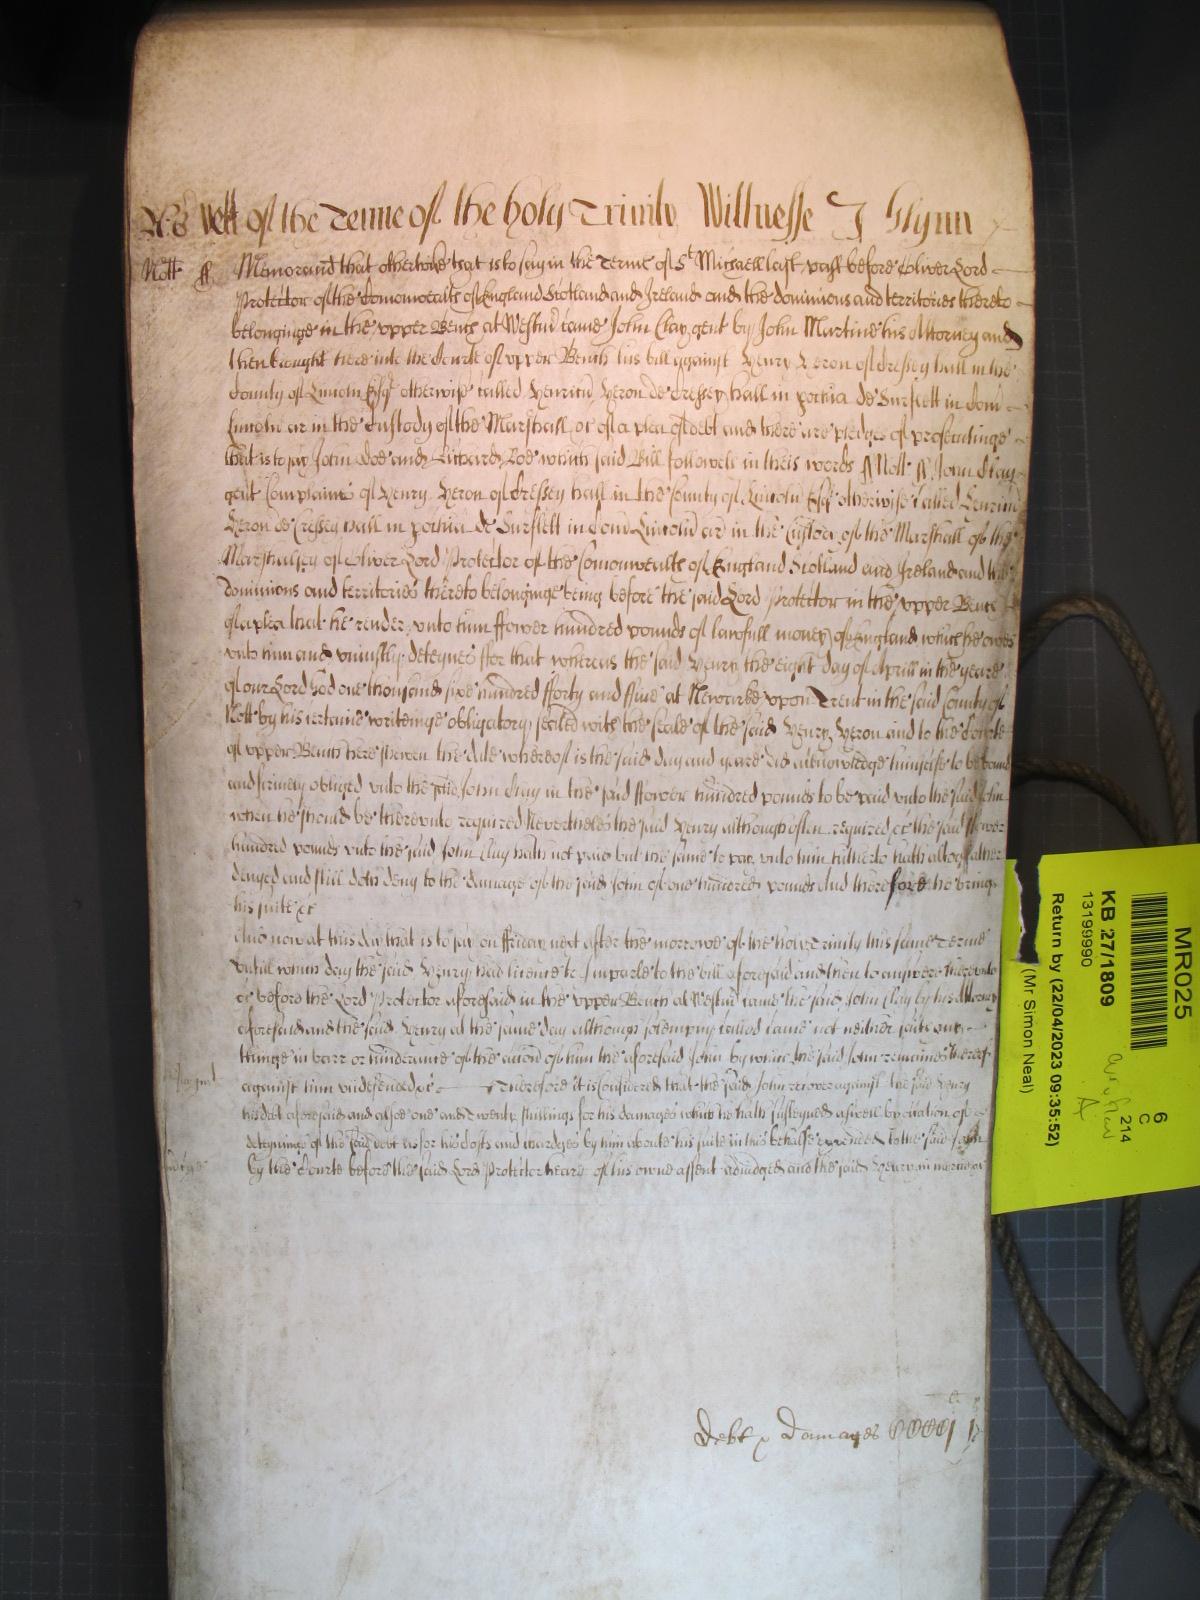 yett of the Terme of the holy Trinity Witnesse J Glynn
Nott ss Memorand that otherwise that is to say in the Terme of St Michaell last past before Oliver Lord
Protector of the Comonwealth of England Scotland and Ireland and the dominions and territories thereto
belonginge in the upper Bench at Westm̃ came John Clay gent by John Martine his Attorney and
then brought here into the Courte of upper Bench his bill against Henry Heron of Cressey hall in the
County of Lincoln Esqr otherwise called Henricũ Heron de Cressey hall in pochia de Surflett in Com
Lincoln ar in the Custody of the Marshall &c of a plea of debt and there are pledges of prosecutinge
that is to say John Doe and Richard Roe which said Bill followeth in theis words ss Nott ss John Clay
gent Complaines of Henry Heron of Cressey hall in the County of Lincoln Esqr otherwise called Henricũ
Heron de Cressey hall in pochia de Surflett in Com Lincoln ar in the Custody of the Marshall of the
Marshalsey of Oliver Lord Protector of the Comonwealth of England Scotland and Ireland and the
dominions and territories thereto belonginge being before the said Lord Protector in the upper Bench
of a plea that he render unto him ffower hundred pounds of lawfull money of England which he owes
unto him and uniustly deteynes ffor that whereas the said Henry the eight day of Aprill in the yeare
of our Lord God one thousand sixe hundred fforty and ffive at Newarke upon Trent in the said County of
Nott by his certaine writeinge obligatory sealed with the seale of the said Henry Heron and to the Courte
of upper Bench here shewen the date whereof is the said day and yeare did acknowledge himselfe to be bound
and firmely obliged unto the said John Clay in the said ffower hundred pounds to be paid unto the said John
when he should be thereunto required Neverthelesse the said Henry although often required &c the said ffower
hundred pounds unto the said John Clay hath not paid but the same to pay unto him hitherto hath altogeather
denyed and still doth deny to the damage of the said John of one hundred pounds And therefore he brings
his suite &c
And now at this day that is to say on ffriday next after the morrowe of the holy Trinity this same Terme
untill which day the said Henry had licence to Imparle to the bill aforesaid and then to answere thereunto
&c before the Lord Protector aforesaid in the upper Bench at Westm̃ came the said John Clay by his Attorney
aforesaid and the said Henry at the same day although solempnly called came not neither saith any
thinge in barr or hinderance of the accion of him the aforesaid John by which the said John remaines thereof
against him undefended &c Therefore it is Considered that the said John recover against the said Henry
his debt aforesaid and alsoe one and twenty shillings for his damages which he hath susteyned aswell by occasion of
deteyninge of the said debt as for his costs and chardges by him aboute his suite in this behalfe expended to the said John
by the Courte before the said Lord Protector heare of his owne assent adiudged and the said Henry in mercie &c
Debt & Damages
MR025
KB 27/1809
13199990
Return by (22/04/2023 09:35:52)
(Mr Simon Neal)
6
C
214